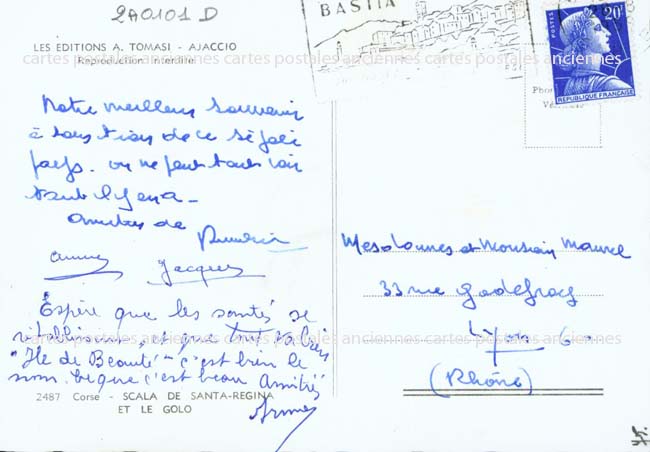 2A0101 D
BASTIA
POSTES
20F
REPUBLIQUE FRANÇAISE
LES EDITIONS A. TOMASI - AJACCIO
Reproduction interdite
cartes postales anciennes cartes postales anciennes cartes postales anciennes
Notre meilleur souvenir
à tous trois de ce si joli
pays. on ne peut tout voir
tant il y en a -
Amitiés de
Anne Jacques
Mesdames et Monsieur Maurel
33 rue Godefroy
Lyon 6
(Rhône)
Espère que les santés se
rétablissent et que tout va bien
cartes postales anciennes cartes postales anciennes cartes postales anciennes
"Ile de Beauté" - c'est bien le
nom. que c'est beau Amitiés
2487 Corse - SCALA DE SANTA-REGINA
ET LE GOLO